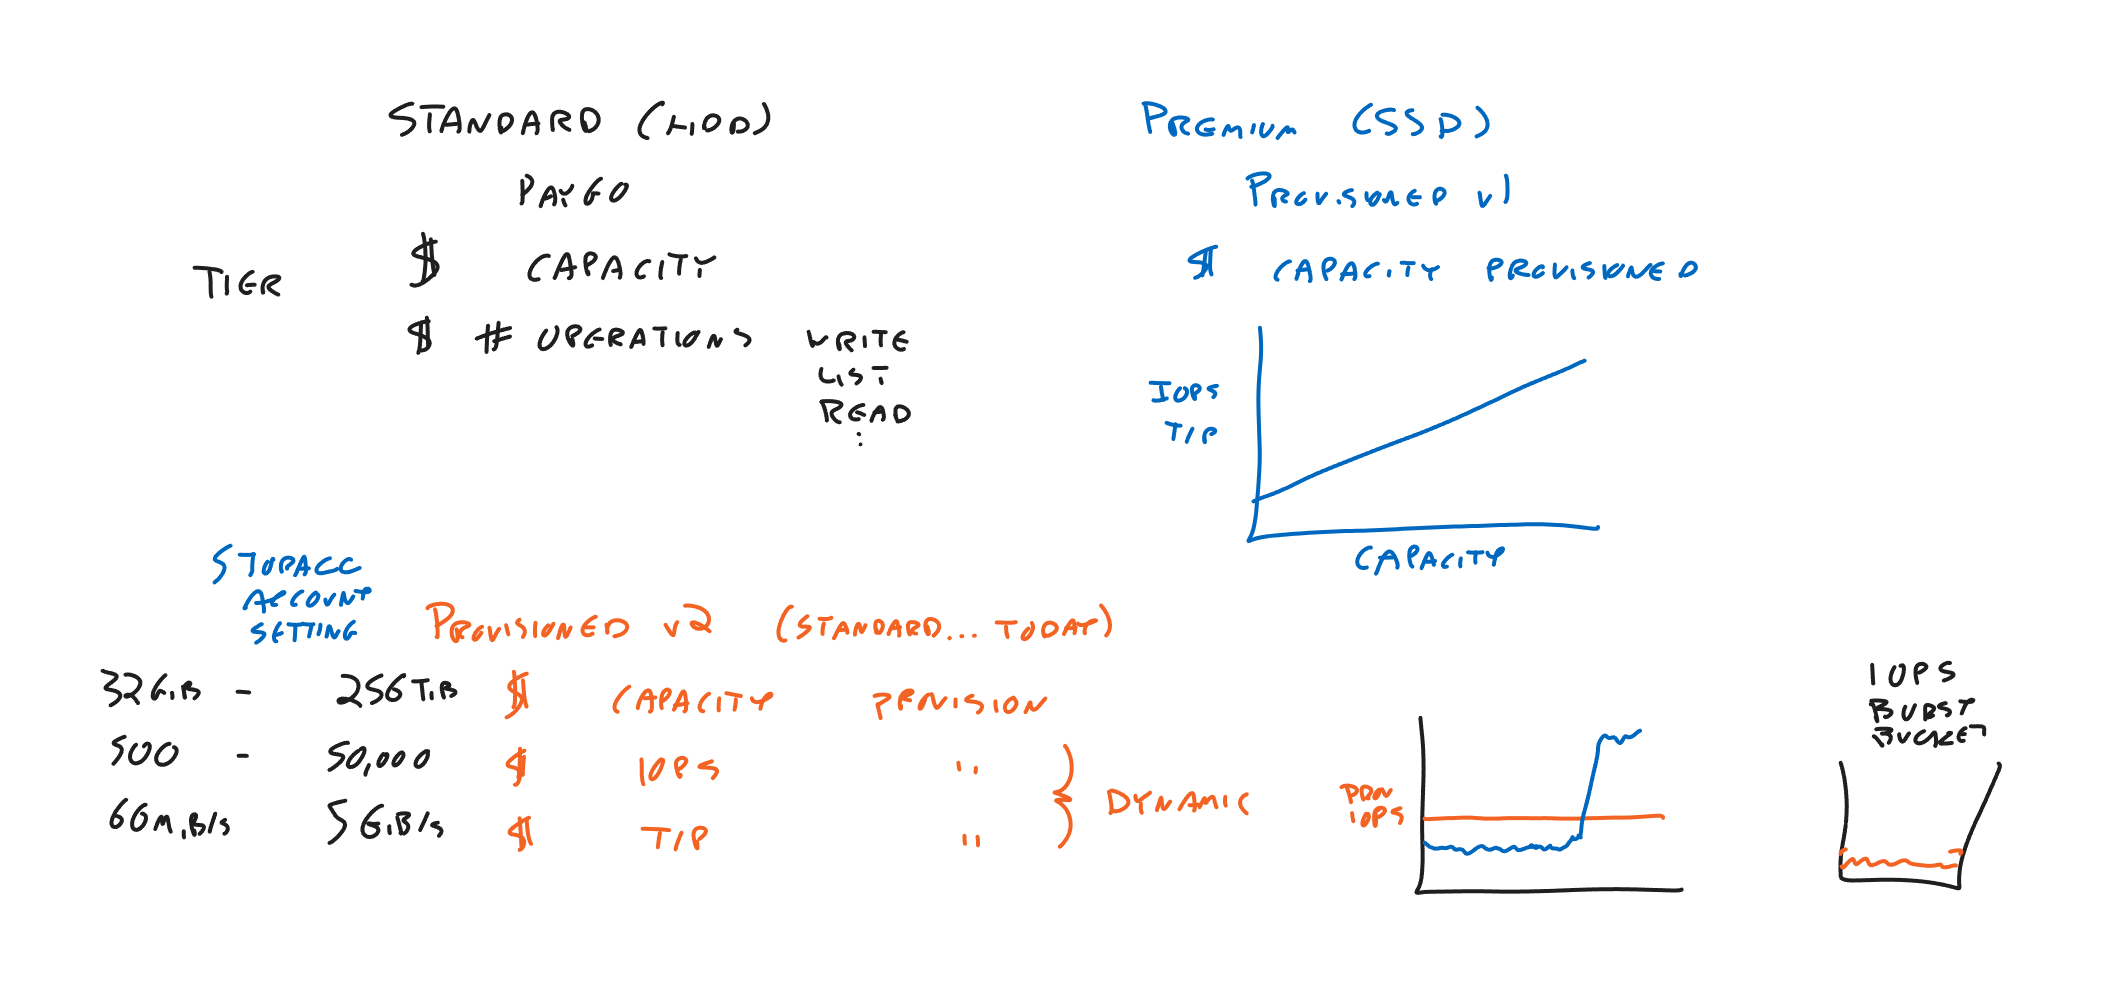 STANDARD (HDD)
PAYGO
TIER
$ CAPACITY
$ # OPERATIONS WRITE
LIST
READ
⋮
PREMIUM (SSD)
PROVISIONED v1
$ CAPACITY PROVISIONED
IOPS
T/P
CAPACITY
STORAGE
ACCOUNT
SETTING
PROVISIONED v2 (STANDARD... TODAY)
32GiB - 256TiB $ CAPACITY PROVISION
500 - 50,000 $ IOPS "
60MiB/s 5GiB/s $ T/P "
DYNAMIC
IOPS
IOPS
BURST
BUCKET